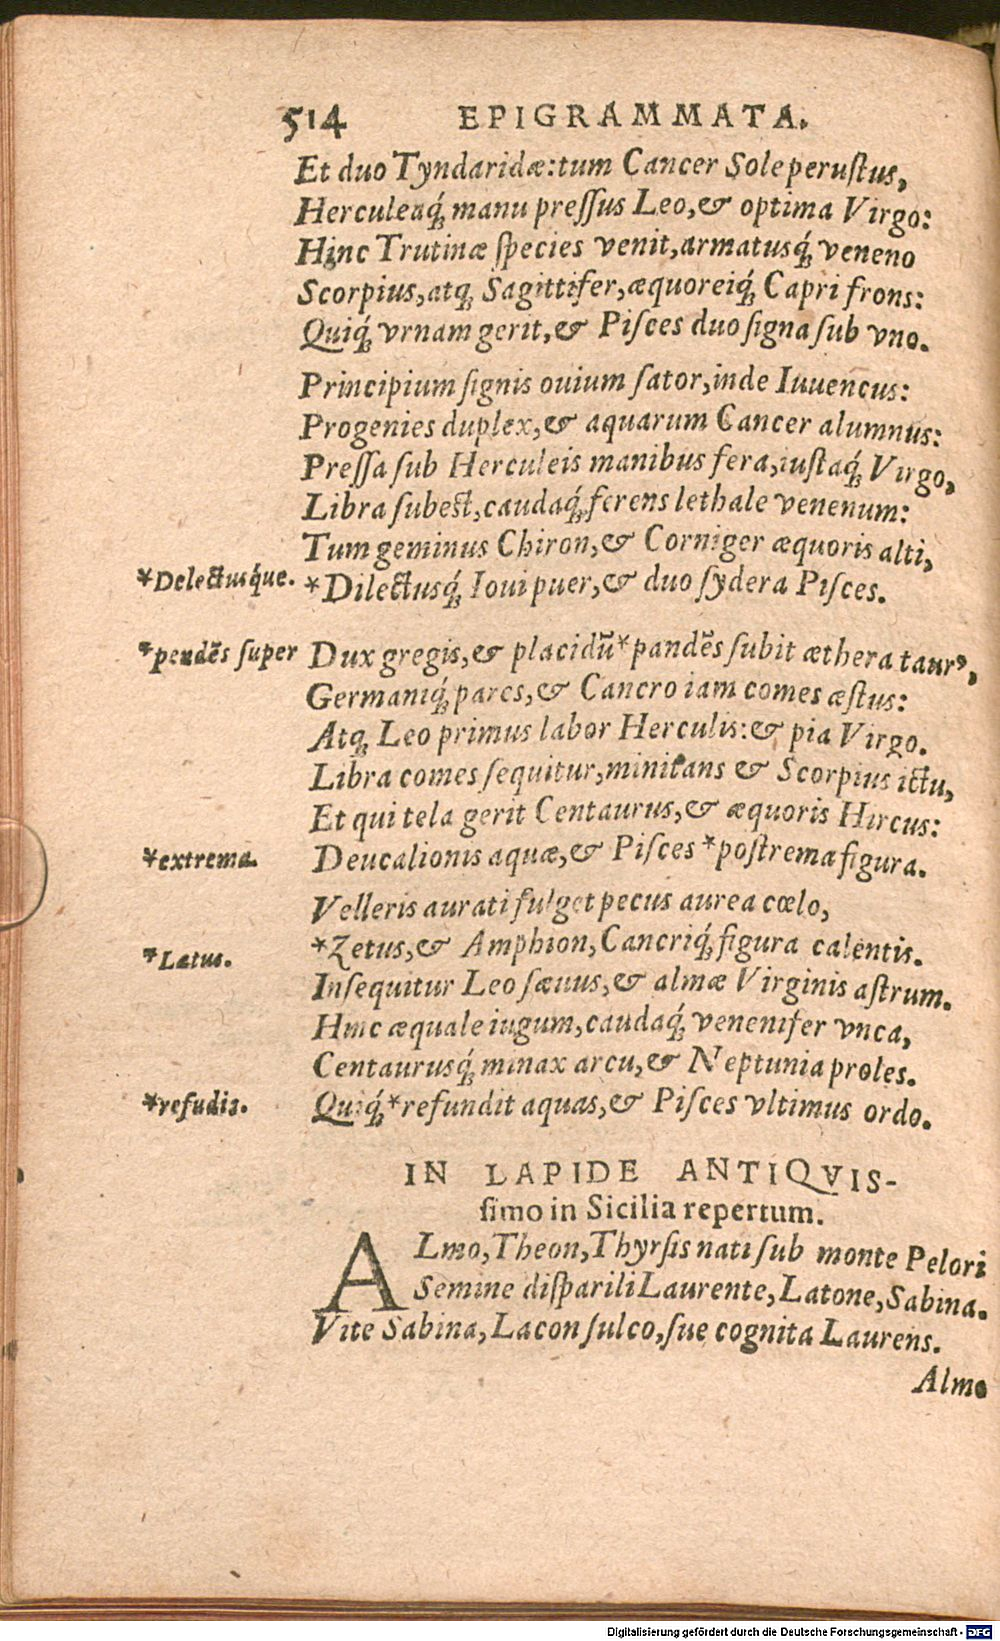 514 EPIGRAMMATA.
Et duo Tyndaridæ: tum Cancer Sole perustus,
Herculeaq́; manu pressus Leo, & optima Virgo:
Hinc Trutinæ species venit, armatusq́; veneno
Scorpius, atq; Sagittifer, æquoreiq́; Capri frons:
Quiq́; vrnam gerit, & Pisces duo signa sub vno.
Principium signis ouium sator, inde Iuuencus:
Progenies duplex, & aquarum Cancer alumnus:
Pressa sub Herculeis manibus fera, iustaq́; Virgo,
Libra subest, caudaq́; ferens lethale venenum:
Tum geminus Chiron, & Corniger æquoris alti,
*Delectusq́ue. *Dilectusq́; Ioui puer, & duo sydera Pisces.
*pendẽs super Dux gregis, & placidũ *pandẽs subit æthera taurꝰ,
Germaniq́; pares, & Cancro iam comes æstus:
Atq; Leo primus labor Herculis: & pia Virgo.
Libra comes sequitur, minitans & Scorpius ictu,
Et qui tela gerit Centaurus, & æquoris Hircus:
*extrema. Deucalionis aquæ, & Pisces *postrema figura.
Velleris aurati fulget pecus aurea cœlo,
*Latus. *Zetus, & Amphion, Cancriq́; figura calentis.
Insequitur Leo sæuus, & almæ Virginis astrum.
Hinc æquale iugum, caudaq́; venenifer vnca,
Centaurusq́; minax arcu, & Neptunia proles.
*refudis. Quiq́; *refundit aquas, & Pisces vltimus ordo.
IN LAPIDE ANTIQVIS-
simo in Sicilia repertum.
ALmo, Theon, Thyrsis nati sub monte Pelori
Semine disparili Laurente, Latone, Sabina.
Vite Sabina, Lacon sulco, sue cognita Laurens.
Almo
Digitalisierung gefördert durch die Deutsche Forschungsgemeinschaft - DFG